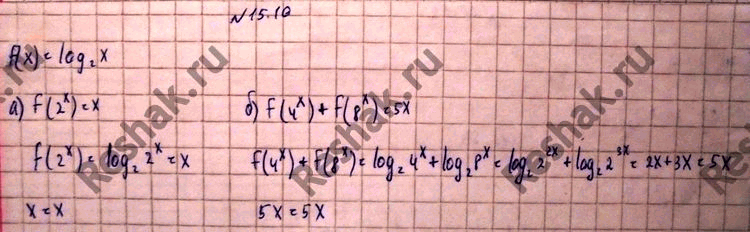 №15.10
f(x) = log₂ x
а) f(2ˣ) = x б) f(4ˣ) + f(8ˣ) = 5x
f(2ˣ) = log₂ 2ˣ = x f(4ˣ) + f(8ˣ) = log₂ 4ˣ + log₂ 8ˣ = log₂ 2²ˣ + log₂ 2³ˣ = 2x + 3x = 5x
x = x 5x = 5x
Reshak.ru
Reshak.ru
Reshak.ru